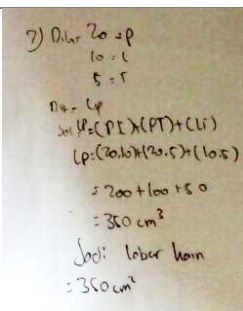 7) Dik: 20 = P
10 = L
5 = T
Dit = Lp
Jwb Lp = (P.L)+(P.T)+(L.T)
Lp = (20.10)+(20.5)+(10.5)
= 200 + 100 + 50
= 350 cm³
Jadi lebar kain
= 350 cm²